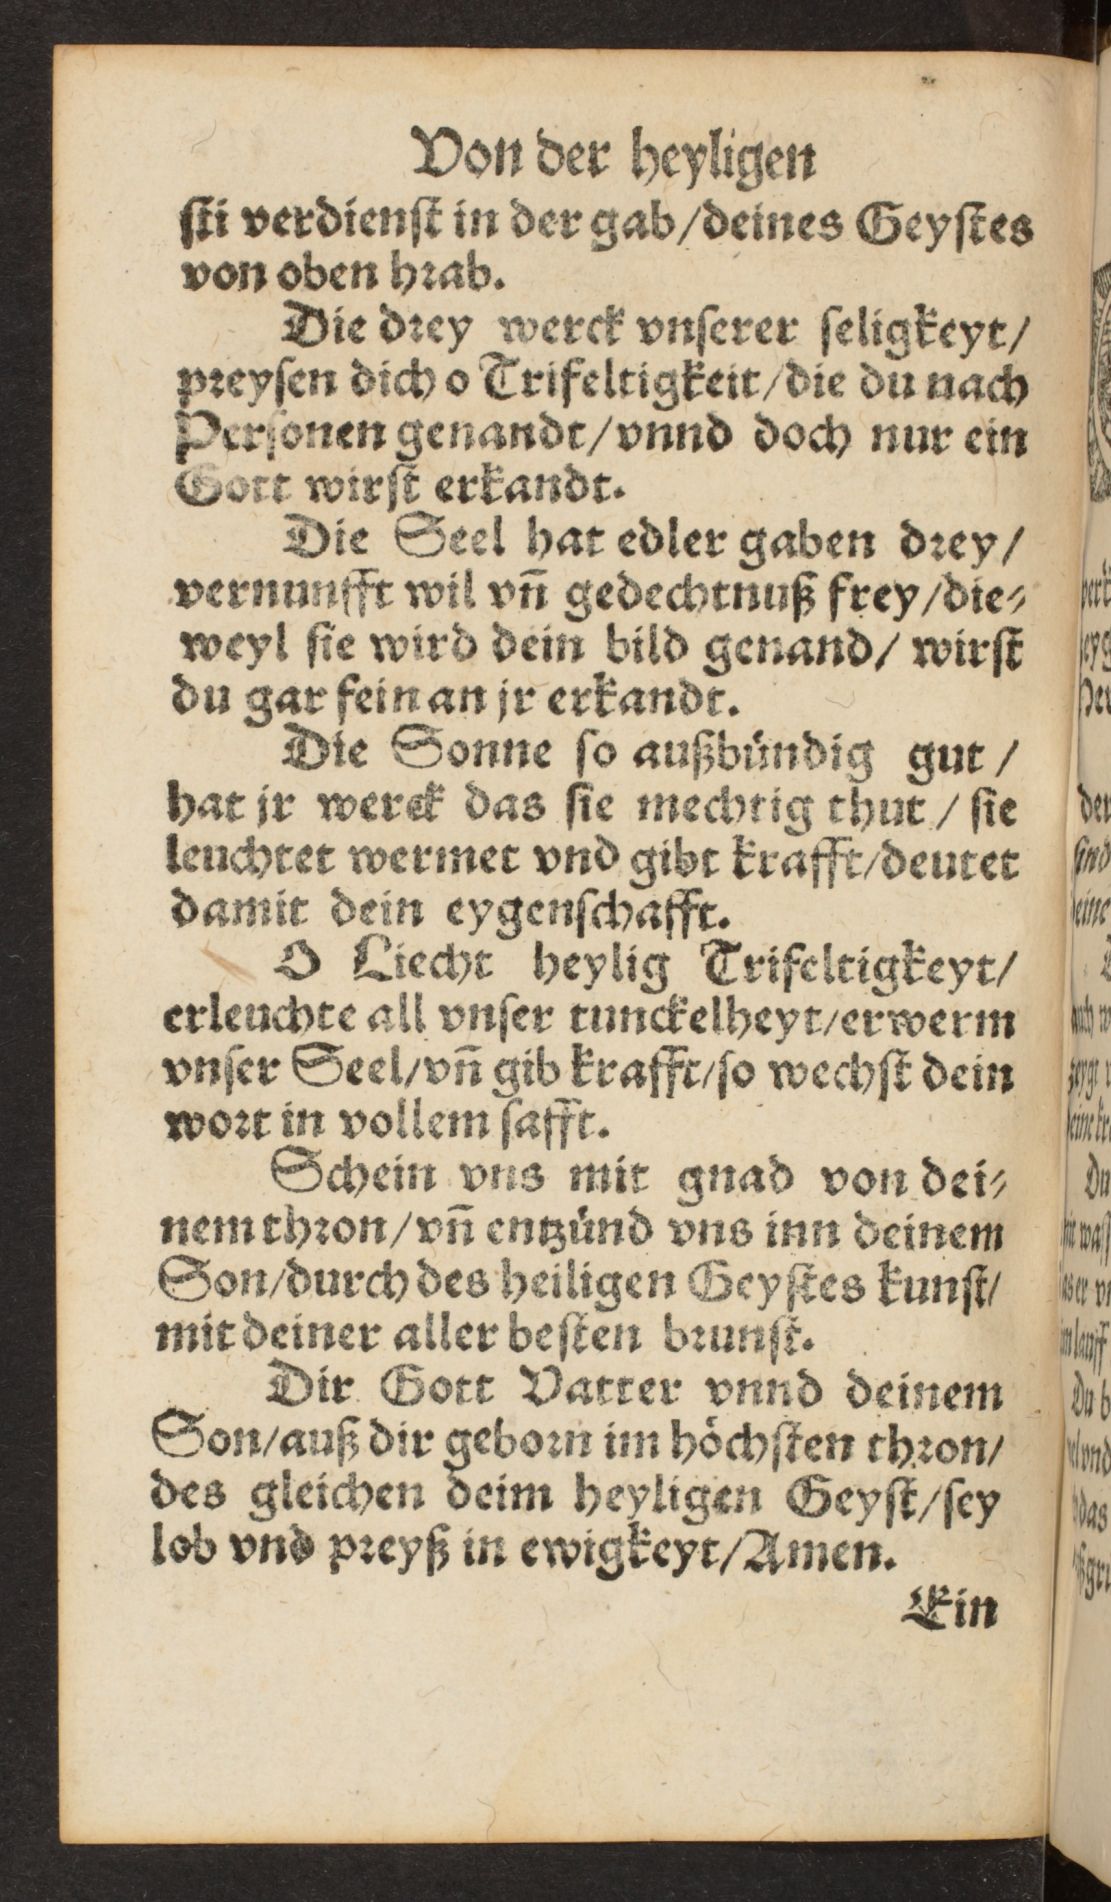 Von der heyligen
sti verdienst in der gab/deines Geystes
von oben hrab.
Die drey werck vnserer seligkeyt/
preysen dich o Trifeltigkeit/die du nach
Personen genandt/vnnd doch nur ein
Gott wirst erkandt.
Die Seel hat edler gaben drey/
vernunfft wil vñ gedechtnuß frey/die-
weyl sie wird dein bild genand/ wirst
du gar fein an jr erkandt.
Die Sonne so außbündig gut /
hat jr werck das sie mechtig thut / sie
leuchtet wermet vnd gibt krafft/deutet
damit dein eygenschafft.
O Liecht heylig Trifeltigkeyt/
erleuchte all vnser tunckelheyt/erwerm
vnser Seel/vñ gib krafft/so wechst dein
wort in vollem safft.
Schein vns mit gnad von dei-
nem thron/vñ entzünd vns inn deinem
Son/durch des heiligen Geystes kunst/
mit deiner aller besten brunst.
Dir Gott Vatter vnnd deinem
Son/auß dir geborn im höchsten thron/
des gleichen deim heyligen Geyst/sey
lob vnd preyß in ewigkeyt/Amen.
Ein